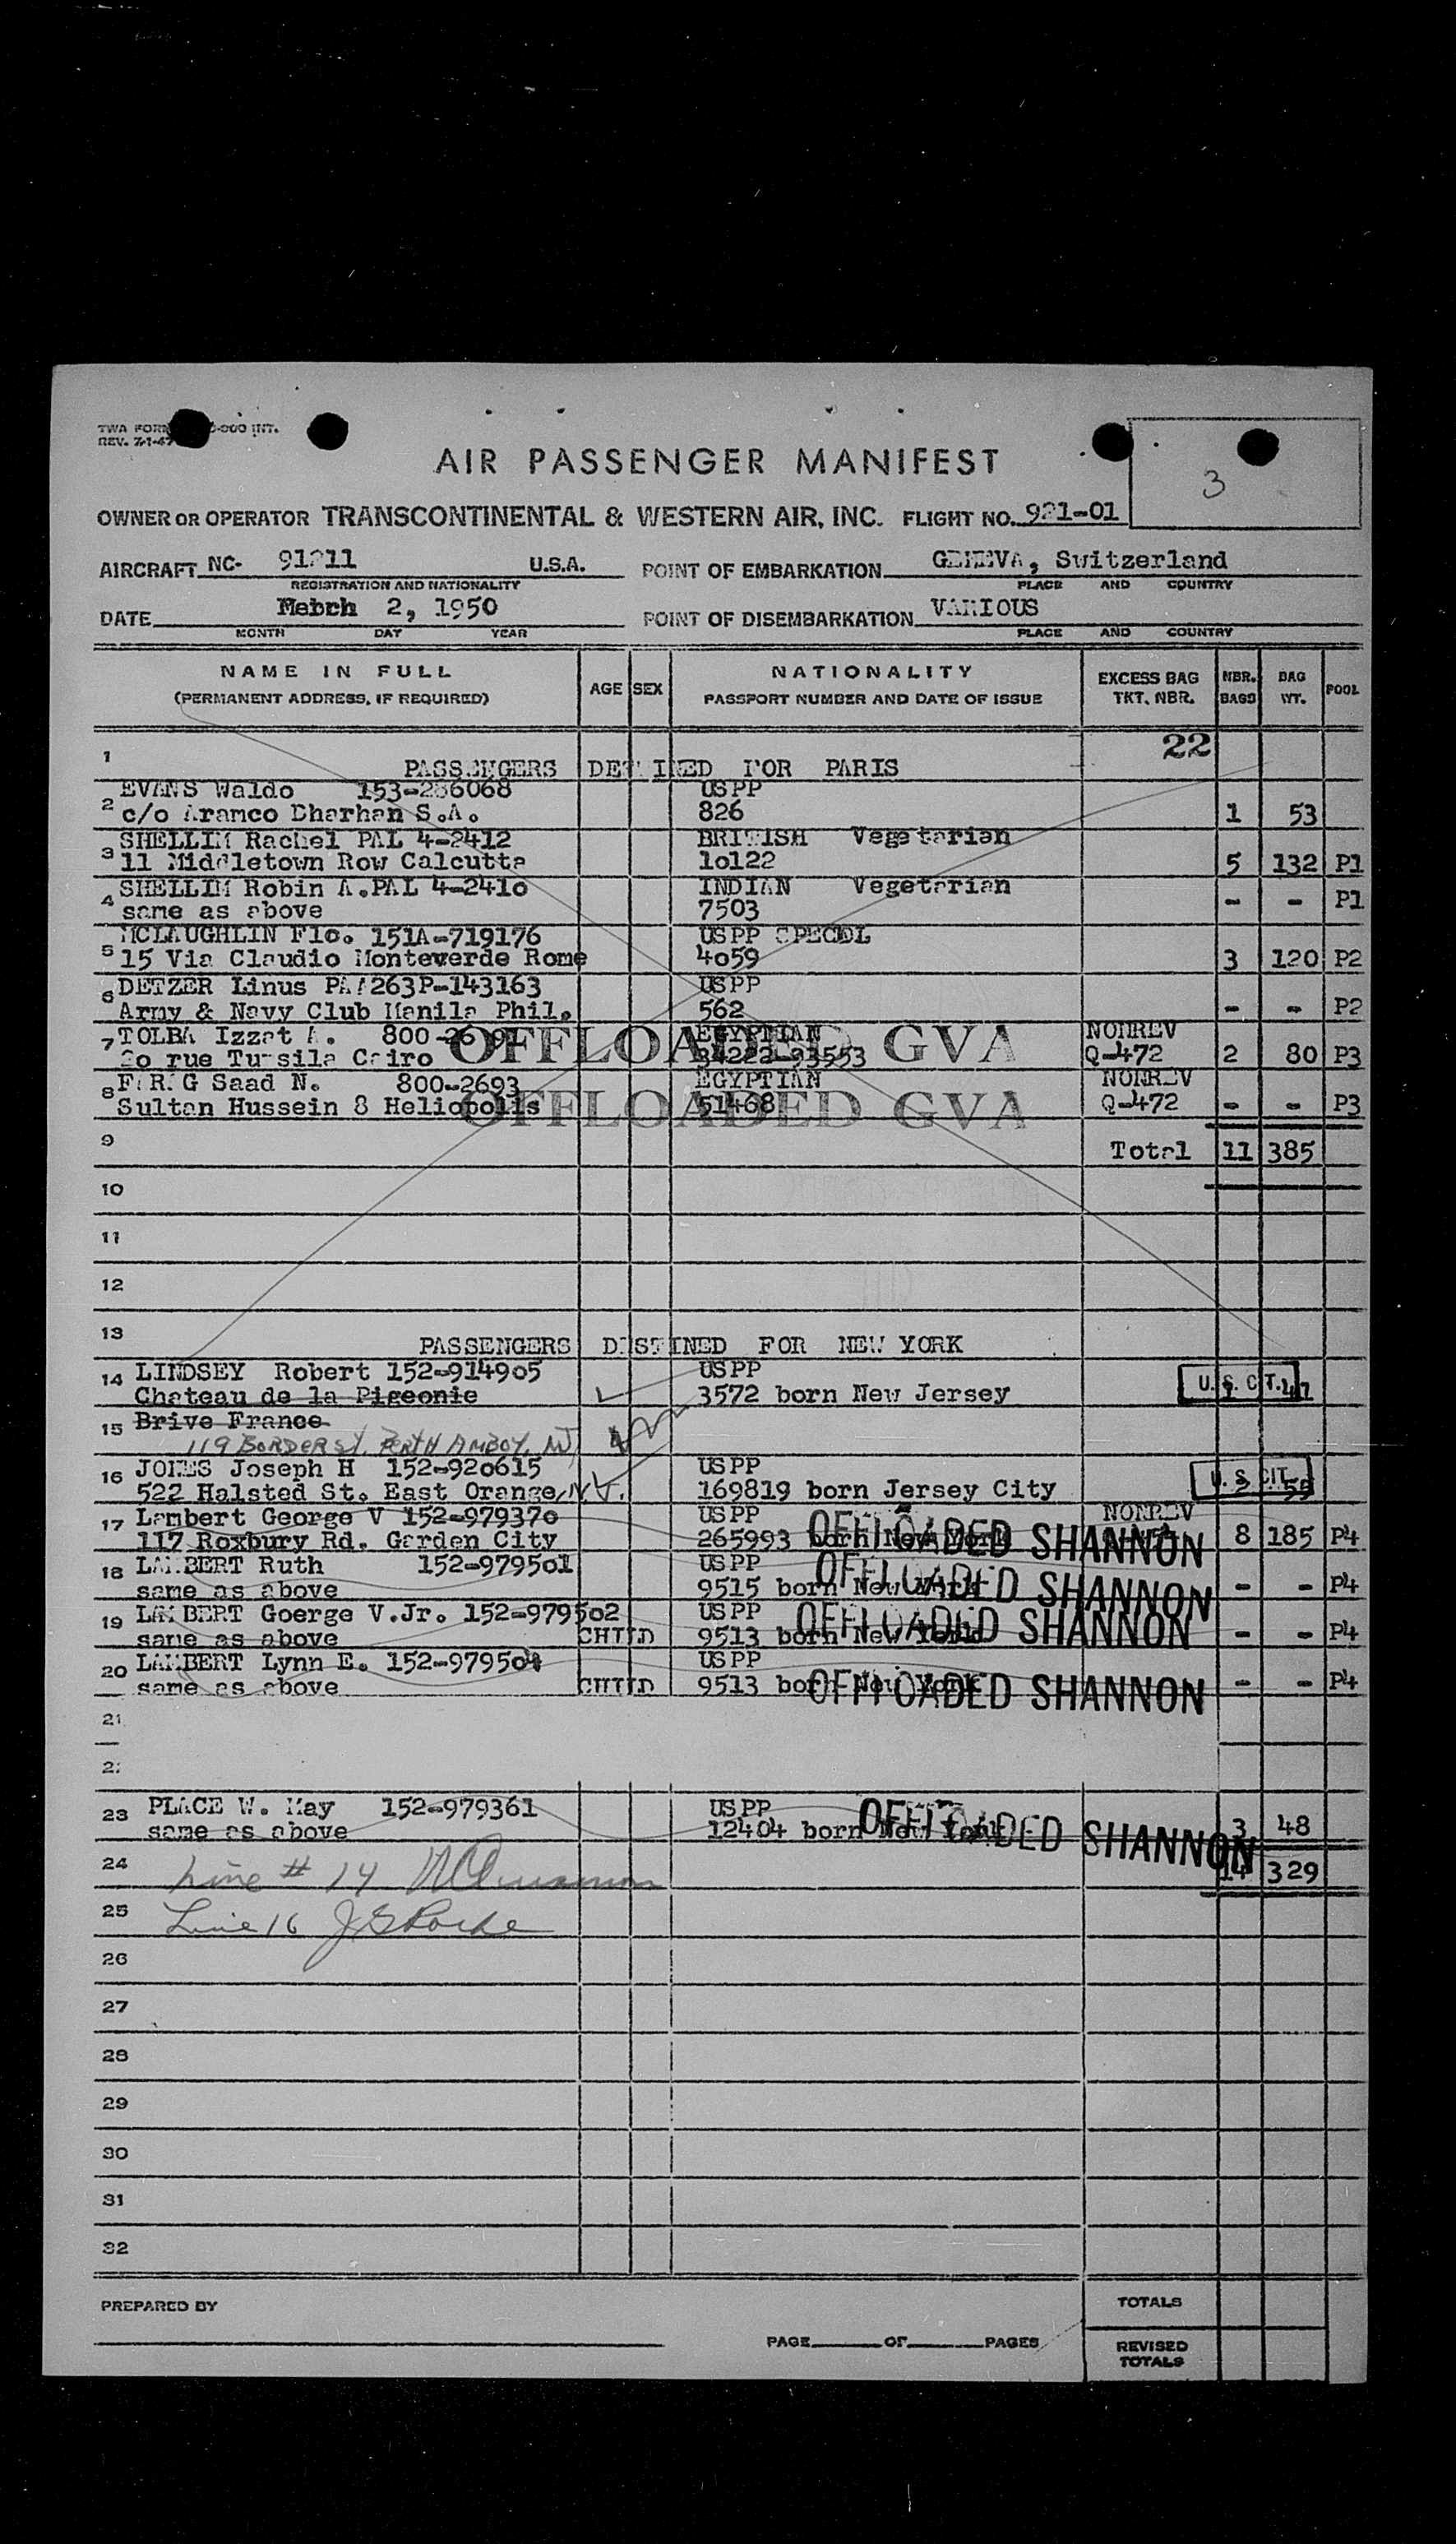 TWA FORM -900 INT.
REV. 7-1-47
AIR PASSENGER MANIFEST
3
OWNER OR OPERATOR TRANSCONTINENTAL & WESTERN AIR, INC. FLIGHT NO. 921-01
AIRCRAFT NC- 91211 U.S.A. POINT OF EMBARKATION GENEVA, Switzerland
REGISTRATION AND NATIONALITY PLACE AND COUNTRY
DATE 2, 1950 POINT OF DISEMBARKATION VARIOUS
MONTH DAY YEAR PLACE AND COUNTRY
NAME IN FULL AGE SEX NATIONALITY EXCESS BAG NBR. BAG POOL
(PERMANENT ADDRESS, IF REQUIRED) PASSPORT NUMBER AND DATE OF ISSUE TKT. NBR. BAGS WT.
22
1 PASSENGERS DETINED FOR PARIS
EVANS Waldo 153-286068 USPP
2 c/o Aramco Dharhan S.A. 826 1 53
SHELLIM Rachel PAL 4-2412 BRITISH Vegetarian
3 11 Middletown Row Calcutta 10122 5 132 P1
SHELLIM Robin A.PAL 4-2410 INDIAN Vegetarian
4 same as above 7503 - - P1
MCLAUGHLIN Flo. 151A-719176 USPP
5 15 Via Claudio Monteverde Rome 4059 3 120 P2
DETZER Linus PAA263P-143163 USPP
6 Army & Navy Club Manila Phil. 562 - - P2
7 TOLBA Izzat A. 800- EGYPTIAN NONREV
20 rue Tursila Cairo 34222-93553 Q-472 2 80 P3
OFFLOADED GVA
8 FARAG Saad N. 800-2693 EGYPTIAN NONREV
Sultan Hussein 8 Heliopolis 51468 Q-472 - - P3
OFFLOADED GVA
9 Total 11 385
10
11
12
13 PASSENGERS DESTINED FOR NEW YORK
14 LINDSEY Robert 152-914905 USPP U.S. CIT.
Chateau de la Pigeonie 3572 born New Jersey
15 Brive France
119 BORDER ST. PERTH AMBOY, NJ
16 JONES Joseph H 152-920615 USPP U.S. CIT.
522 Halsted St. East Orange, N.J. 169819 born Jersey City 55
17 Lambert George V 152-979370 USPP NONREV
117 Roxbury Rd. Garden City 265993 born New York 8 185 P4
OFFLOADED SHANNON
18 LAMBERT Ruth 152-979501 USPP
same as above 9515 born New York - - P4
OFFLOADED SHANNON
19 LAMBERT Goerge V.Jr. 152-979502 USPP
same as above CHILD 9513 born New York - - P4
OFFLOADED SHANNON
20 LAMBERT Lynn E. 152-979504 USPP
same as above CHILD 9513 born New York - - P4
OFFLOADED SHANNON
21
2
23 PLACE W. May 152-979361 USPP
same as above 12404 born New York 3 48
OFFLOADED SHANNON
24 Line # 14 14 329
25 Line 16
26
27
28
29
30
31
32
PREPARED BY TOTALS
PAGE OF PAGES REVISED
TOTALS